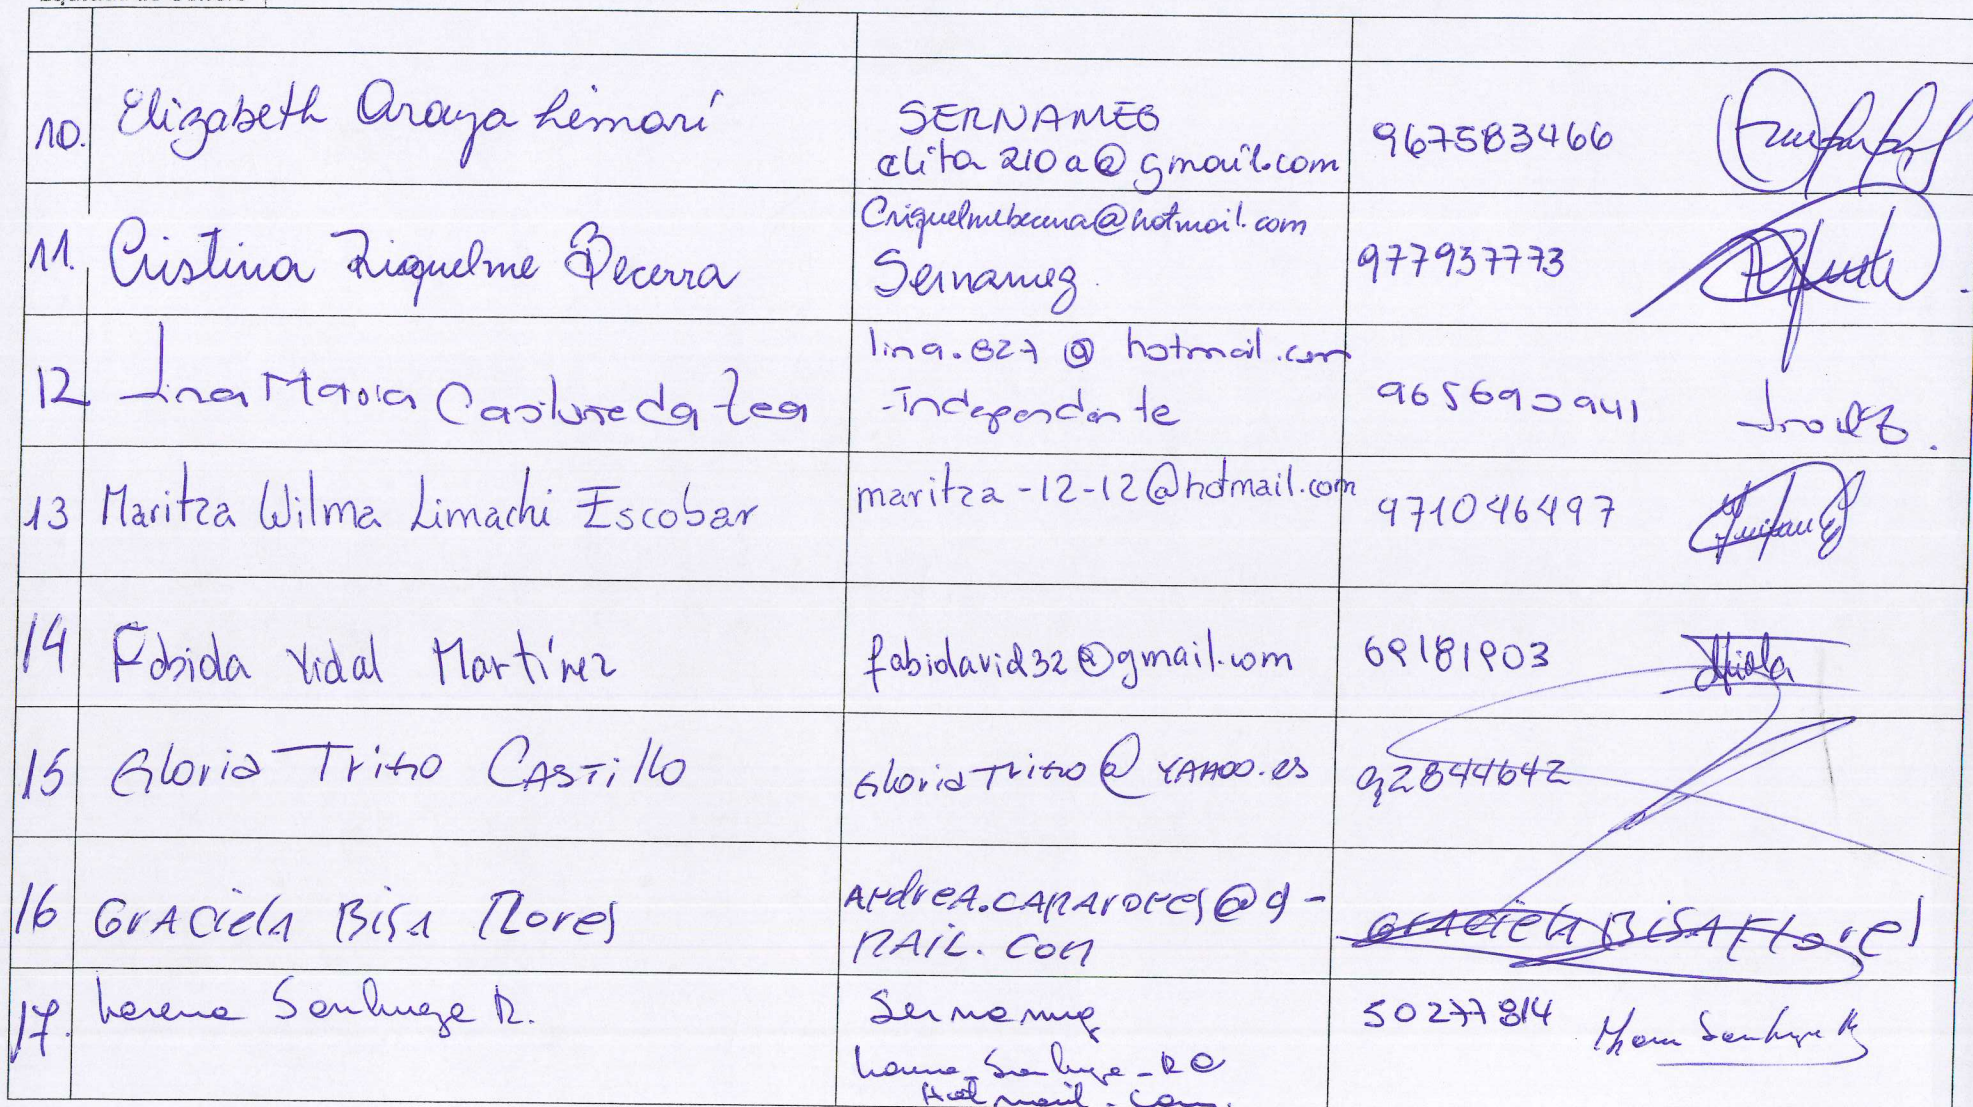 10. Elizabeth Araya Limarí
SERNAMEG
elita210a@gmail.com
967583466
11. Cristina Riquelme Becerra
Criquelmebecerra@hotmail.com
Sernameg.
977937773
12 Lina Maria Castañeda Zea
lina.827@hotmail.com
-Independente
965690941
13 Maritza Wilma Limachi Escobar
maritza-12-12@hotmail.com
971046497
14 Fabiola Vidal Martínez
fabiolavid32@gmail.com
69181903
15 Gloria Trino Castillo
GloriaTrino@YAHOO.es
92844642
16 GrACielA BisA Flores
ANdreA.CAPAroNes@g-
MAiL.COM
GrACielA BiSA Flores
17. Lorena Sanhueza R.
Sernameg
Lorena_Sanhueza_R@
Hotmail.com.
50277814